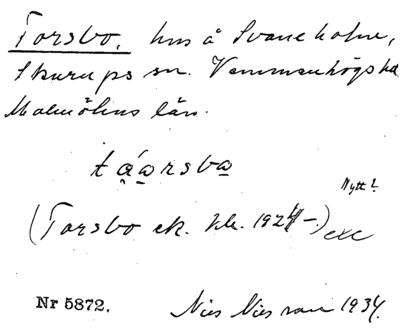 Torsbo, hus å Svaneholm,
Skurups sn. Vemmenhögs hd
Malmöhus län.
tą́ą̊rsbą̊
Nytt?
(Torsbo ek. kb. 1924–.) exc
Nr 5872. Nils Nilsson 1934.